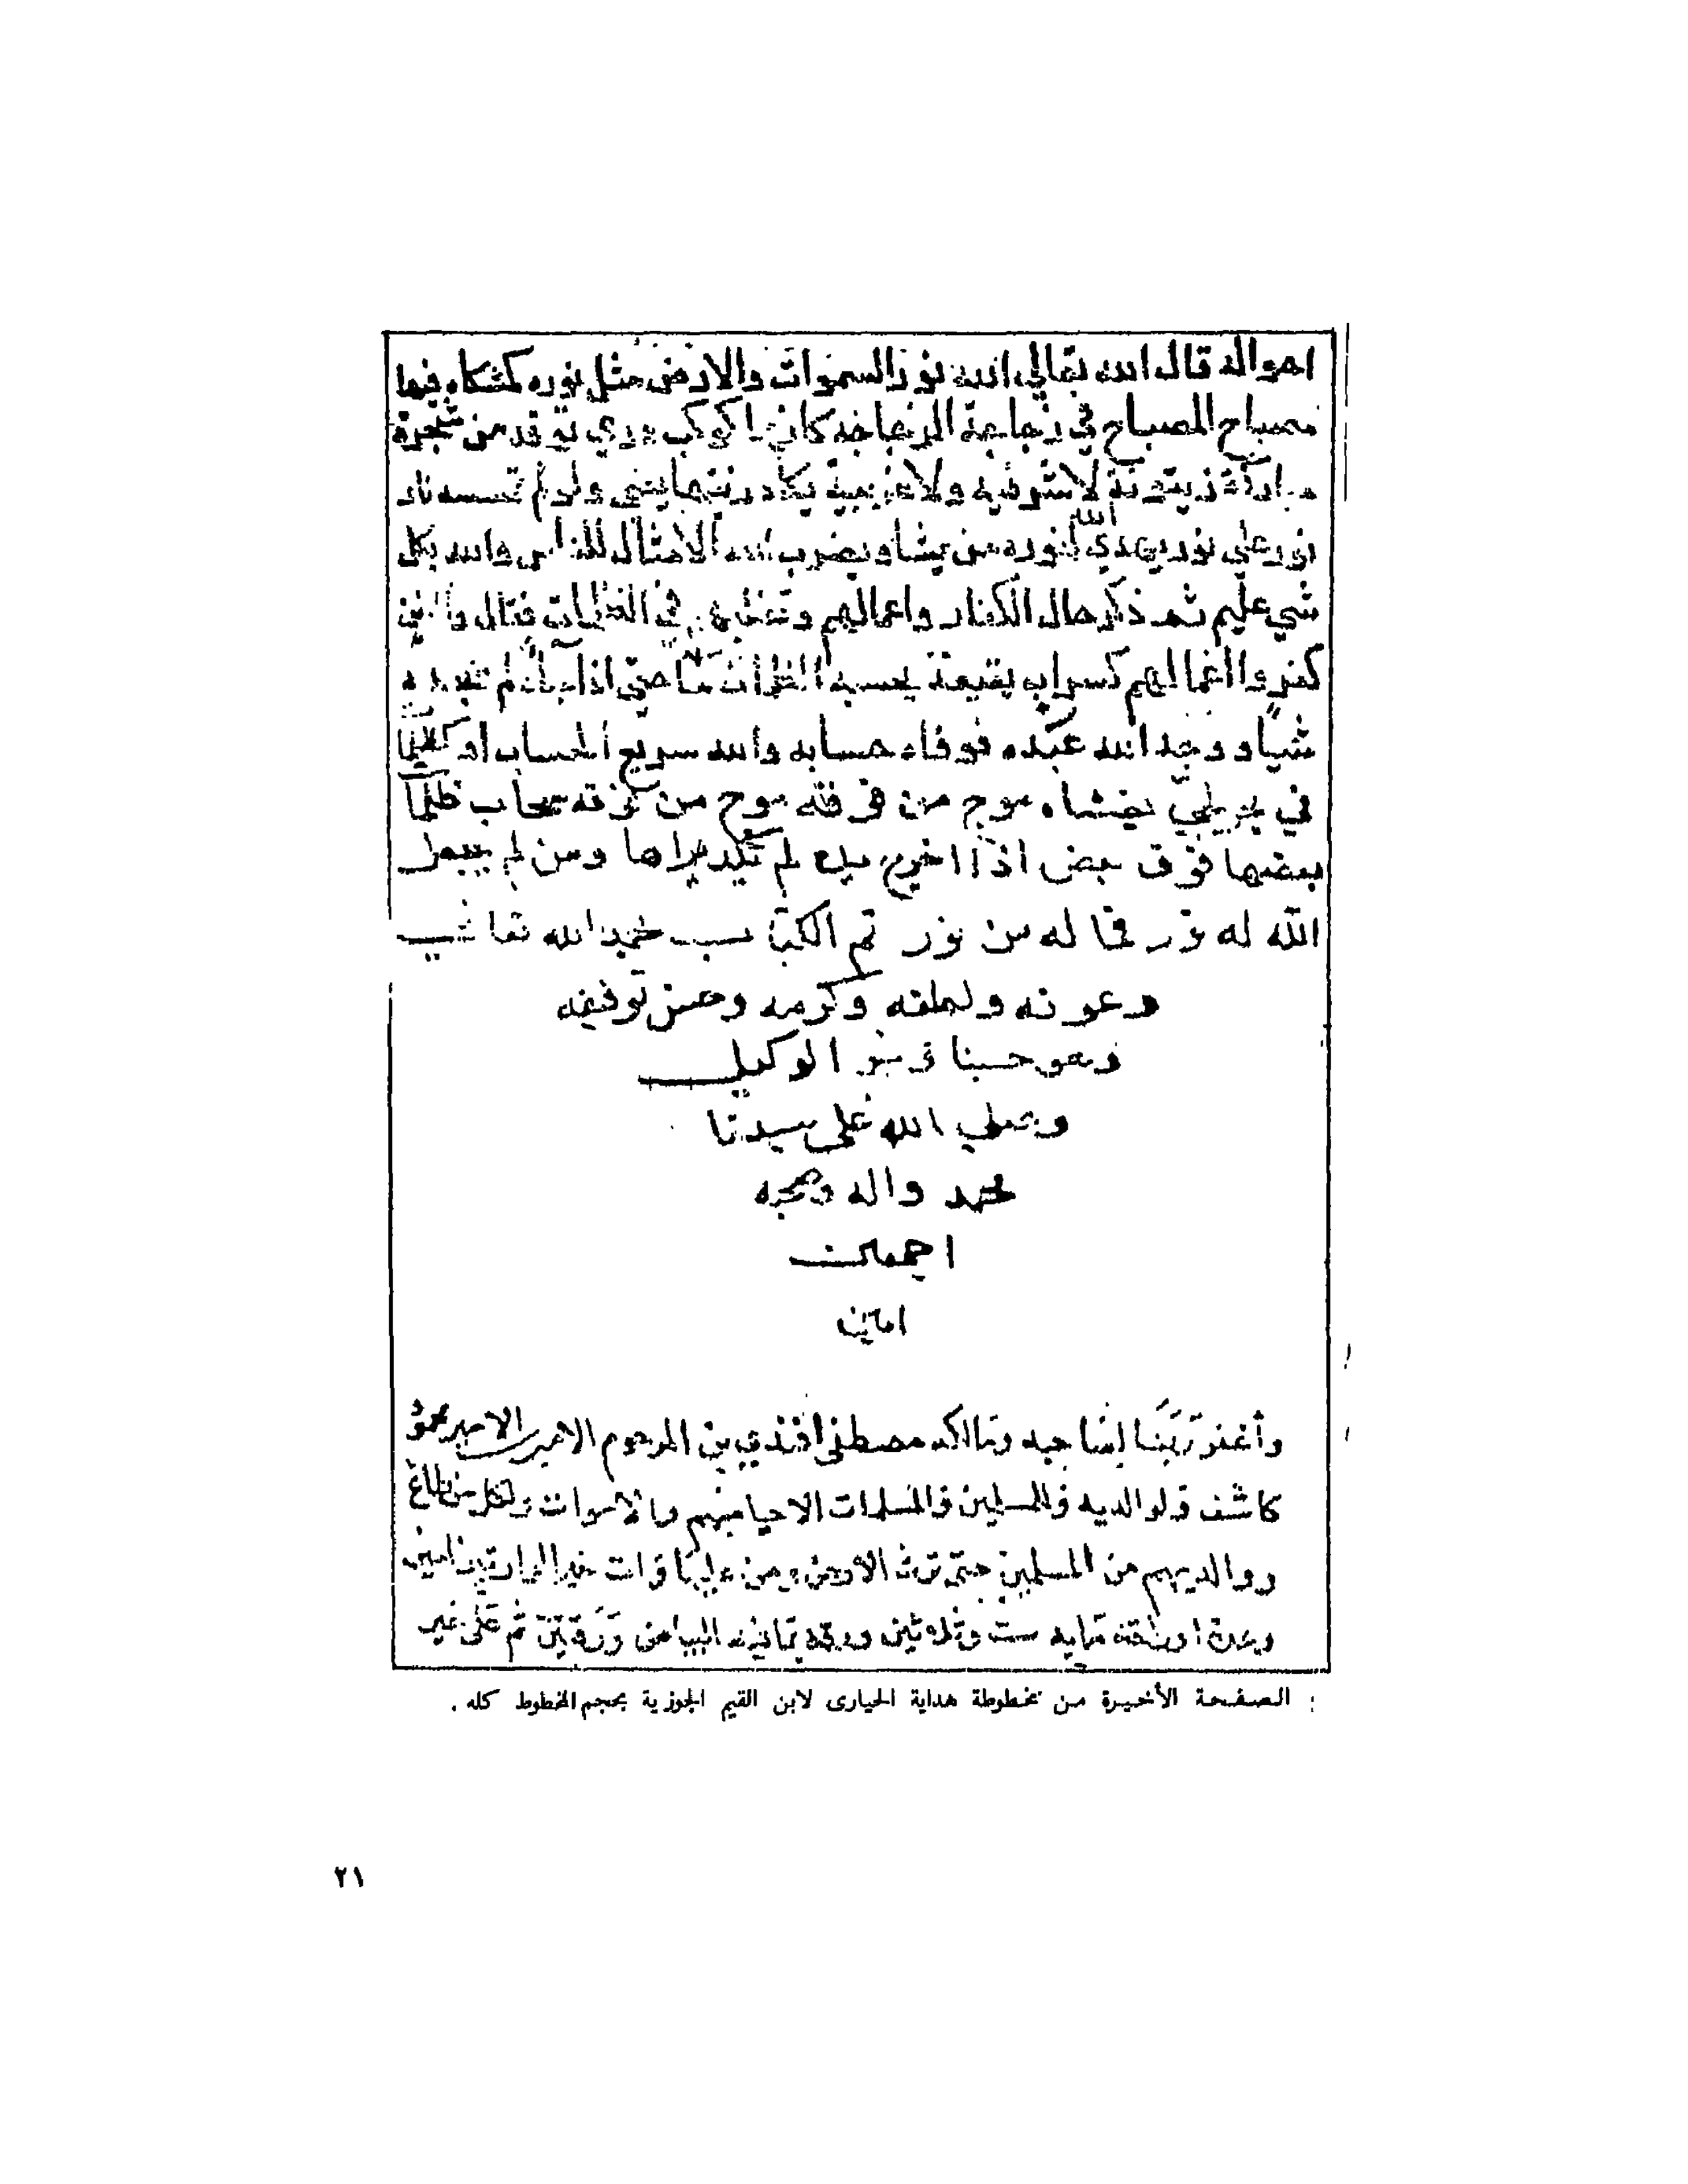 احواله قال الله تعالي الله نور السموات والارض مثل نوره كمشكاه فيها
مصباح المصباح في زجاجة الزجاجه كانها كوكب دري توقد من شجرة
مباركة زيتونة لا شرقيه ولا غربية يكاد زيتها يضي ولو لم تمسسه نار
نور علي نور يهدي الله لنوره من يشا ويضرب الله الامثال للناس والله بكل
شي عليم ثم ذكر حال الكفار واعمالهم وتقلبهم في الظلمات فقال والذين
كفروا اعمالهم كسراب بقيعة يحسبه الظمان ما حتي اذا جاه لم يجده
شيا ووجد الله عنده فوفاه حسابه والله سريع الحساب او كظلمات
في بحر لجي يغشاه موج من فوقه موج من فوقه سحاب ظلمات
بعضها فوق بعض اذا اخرج يده لم يكد يراها ومن لم يجعل
الله له نور فما له من نور تم الكتاب بحمد الله تعالي
وعونه ولطفه وكرمه وحسن توفيقه
وهو حسبنا ونعم الوكيل
وصلي الله علي سيدنا
محمد واله وصحبه
اجمعين
امين
وأغفر ربنا لصاحبه ومالكه مصطفى افندي بن المرحوم الامير الامير محمود
كاشف ولوالديه والمسلمين والمسلمات الاحيا منهم والاموات ولكل من طالع
ووالديهم من المسلمين حتى ترث الأرض ومن عليها وانت خير الوارثين امين
وعدة اوراقه مايه ست وثلاثين ورقه البياض ورقتين تم على خير
الصفحة الأخيرة من مخطوطة هداية الحيارى لابن القيم الجوزية بحجم المخطوط كله .
٢١